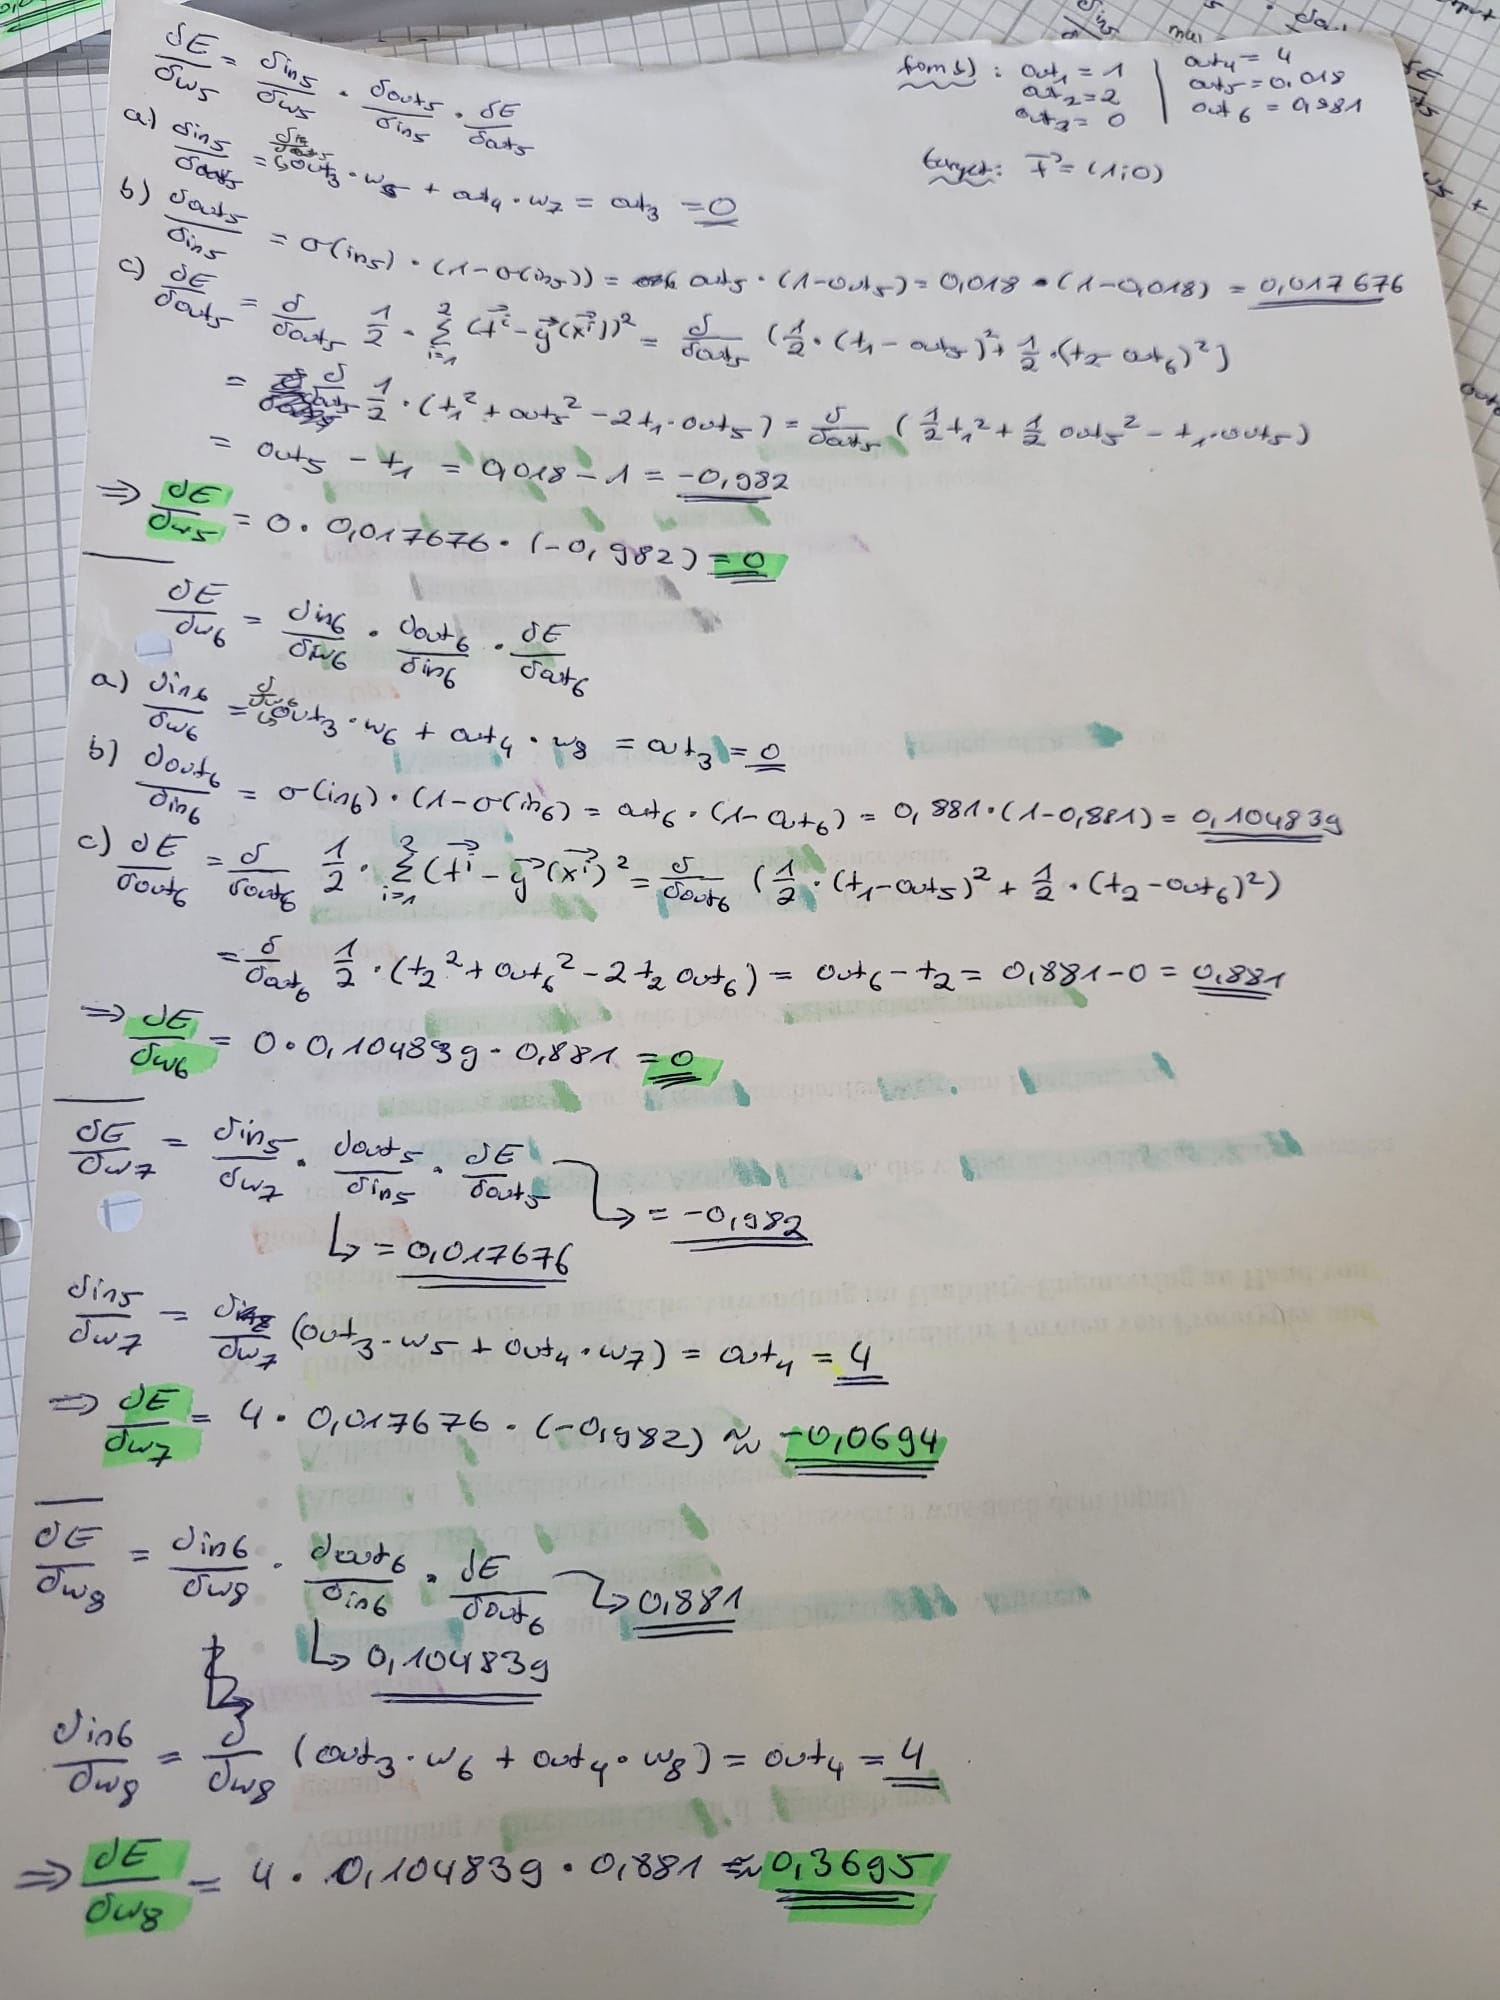 δE/δw5 = δin5/δw5 · δout5/δin5 · δE/δout5
from b): out1 = 1 | out4 = 4
out2 = 2 | out5 = 0,018
out3 = 0 | out6 = 0,881
target: t⃗ = (1;0)
a.) δin5/δout5 = out3 · w5 + out4 · w7 = out3 = 0
b) δout5/δin5 = σ(in5) · (1-σ(in5)) = out5 · (1-out5) = 0,018 · (1-0,018) = 0,017676
c) δE/δout5 = δ/δout5 1/2 · Σ_{i=1}^{2} (t⃗^i - y⃗(x⃗^i))² = δ/δout5 (1/2 · (t1 - out5)² + 1/2 · (t2 - out6)²)
= δ/δout5 1/2 · (t1² + out5² - 2t1 · out5) = δ/δout5 (1/2 t1² + 1/2 out5² - t1 · out5)
= out5 - t1 = 0,018 - 1 = -0,982
⇒ δE/δw5 = 0 · 0,017676 · (-0,982) = 0
δE/δw6 = δin6/δw6 · δout6/δin6 · δE/δout6
a) δin6/δw6 = δ/δw6 out3 · w6 + out4 · w8 = out3 = 0
b) δout6/δin6 = σ(in6) · (1-σ(in6) = out6 · (1-out6) = 0,881 · (1-0,881) = 0,104839
c) δE/δout6 = δ/δout6 1/2 · Σ_{i=1}^{2} (t⃗^i - y⃗(x⃗^i)² = δ/δout6 (1/2 · (t1-out5)² + 1/2 · (t2-out6)²)
= δ/δout6 1/2 · (t2² + out6² - 2t2 out6) = out6 - t2 = 0,881 - 0 = 0,881
⇒ δE/δw6 = 0 · 0,104839 · 0,881 = 0
δE/δw7 = δin5/δw7 · δout5/δin5 · δE/δout5
→ = -0,982
↳ = 0,017676
δin5/δw7 = δ/δw7 (out3 · w5 + out4 · w7) = out4 = 4
⇒ δE/δw7 = 4 · 0,017676 · (-0,982) ≈ -0,0694
δE/δw8 = δin6/δw8 · δout6/δin6 · δE/δout6
→ 0,881
↳ 0,104839
δin6/δw8 = δ/δw8 (out3 · w6 + out4 · w8) = out4 = 4
⇒ δE/δw8 = 4 · 0,104839 · 0,881 ≈ 0,3695